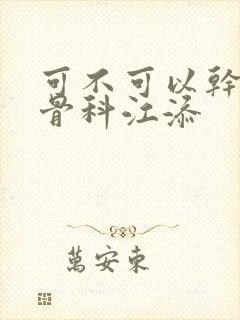 可不可以幹
骨科江添
萬安東